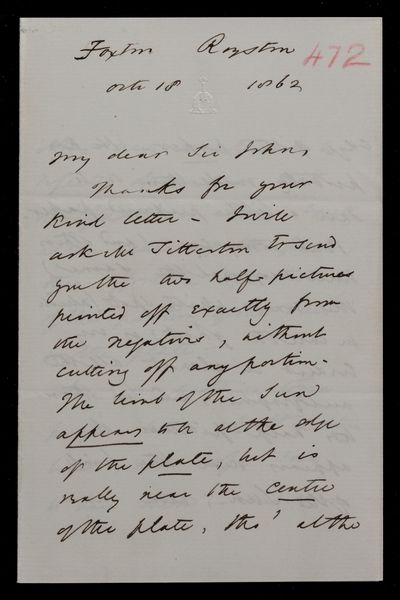 Foxton Royston 472
Oct 18 1862
My dear Sir John,
Thanks for your
kind letter - I will
ask Mr Titterton to send
you the two half-pictures
printed off exactly from
the negatives, without
cutting off any portion -
The limb of the Sun
appears to be at the edge
of the plate, but is
really near the centre
of the plate, tho' at the